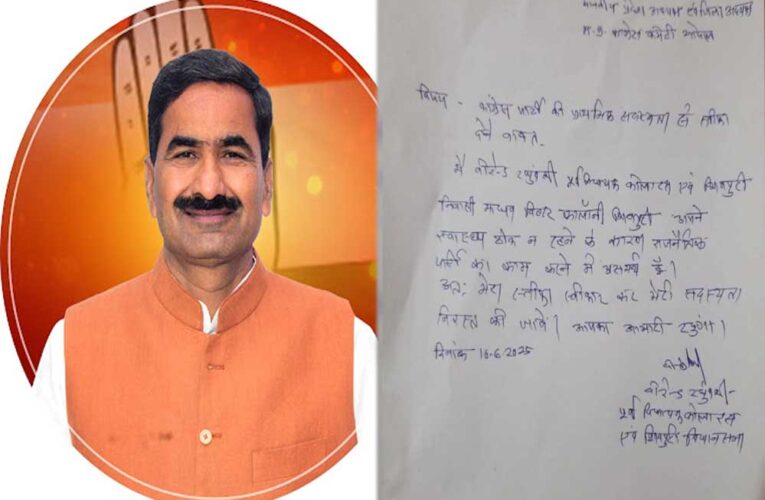 माननीय प्रदेश अध्यक्ष एवं जिला अध्यक्ष
म.प्र. कांग्रेस कमेटी भोपाल
विषय - कांग्रेस पार्टी की प्राथमिक सदस्यता से स्तीफा
देने बावत.
मैं वीरेन्द्र रघुवंशी पूर्व विधायक कोलारस एवं शिवपुरी
निवासी माधव विहार कालोनी शिवपुरी अपने
स्वास्थ्य ठीक न रहने के कारण राजनैतिक
पार्टी का काम करने में असमर्थ हूँ।
अतः मेरा स्तीफा स्वीकार कर मेरी सदस्यता
निरस्त की जावे। आपका आभारी रहूंगा।
दिनांक 16.6.2025
वीरेन्द्र रघुवंशी
पूर्व विधायक कोलारस
एवं शिवपुरी विधानसभा